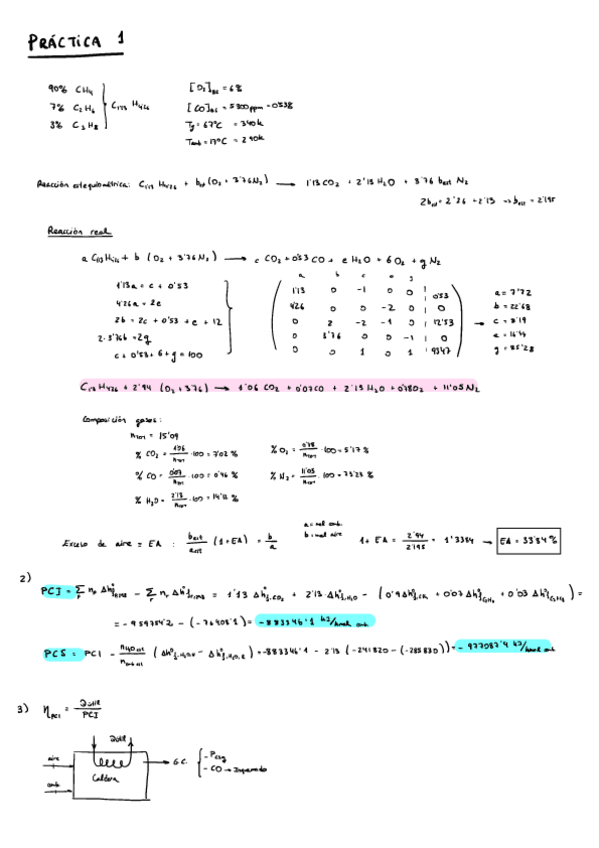 PRÁCTICA 1
90% CH4
7% C2H6
3% C3H8
C1'13 H4'26
[O2]BS = 6%
[CO]BS = 5300ppm = 0'53%
Tg = 67°C = 340k
Tamb = 17°C = 290k
Reacción estequiométrica: C1'13 H4'26 + best (O2 + 3'76N2) → 1'13 CO2 + 2'13 H2O + 3'76 best N2
2best = 2'26 + 2'13 → best = 2'195
Reacción real
a C1'13H4'26 + b (O2 + 3'76N2) → c CO2 + 0'53 CO + e H2O + 6 O2 + g N2
1'13a = c + 0'53
4'26a = 2e
2b = 2c + 0'53 + e + 12
2·3'76b = 2g
c + 0'53 + 6 + g = 100
a b c e g
1'13 0 -1 0 0 0'53
4'26 0 0 -2 0 0
0 2 -2 -1 0 12'53
0 3'76 0 0 -1 0
0 0 1 0 1 93'47
a = 7'72
b = 22'68
c = 8'19
e = 16'44
g = 85'28
C1'13 H4'26 + 2'94 (O2 + 3'76) → 1'06 CO2 + 0'07CO + 2'13 H2O + 0'78O2 + 11'05 N2
Composición gases:
nTOT = 15'09
% CO2 = 1'06/nTOT · 100 = 7'02 %
% O2 = 0'78/nTOT · 100 = 5'17 %
% CO = 0'07/nTOT · 100 = 0'46 %
% N2 = 11'05/nTOT · 100 = 73'23 %
% H2O = 2'13/nTOT · 100 = 14'12 %
Exceso de aire = EA : best/aest (1+EA) = b/a
a = mol comb.
b = mol aire
1 + EA = 2'94/2'195 = 1'3384 → EA = 33'84 %
2)
PCI = Σ np Δh°f,298 - Σ nr Δh°f,298 = 1'13 Δh°f,CO2 + 2'13 Δh°f,H2O - (0'9 Δh°f,CH4 + 0'07 Δh°f,C2H6 + 0'03 Δh°f,C3H8) =
= - 959754'2 - (- 76408'1) = - 883346'1 kJ/kmol comb
PCS = PCI - nH2O est/ncomb est (Δh°f,H2O,v - Δh°f,H2O,l) = -883346'1 - 2'13 (-241820 - (-285830)) = - 977087'4 kJ/kmol comb
3) ηPCI = Qútil/PCI
Qútil
aire
comb
Caldera
GC
- Pcsg
- CO → Inquemado